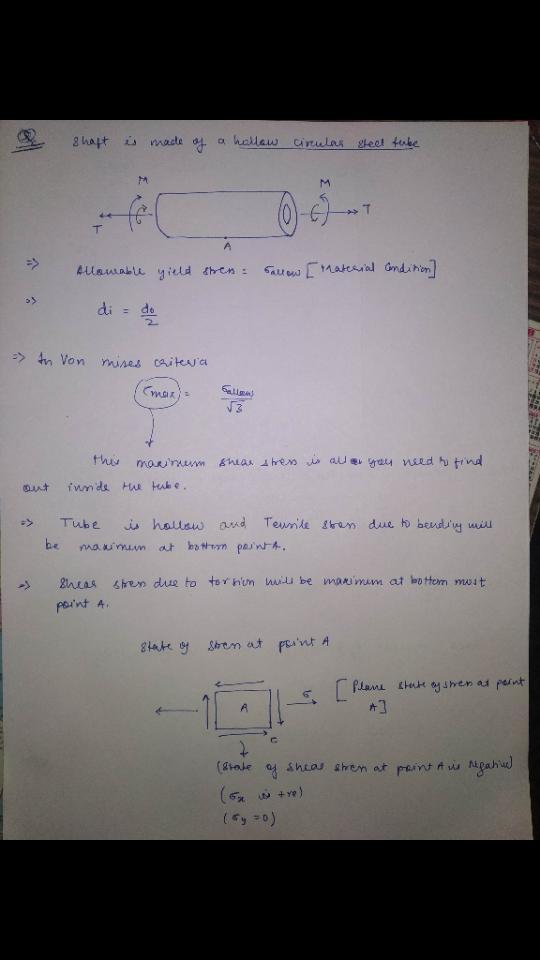 Q
Shaft is made of a hollow circular steel tube
M M
T T
A
=> Allowable yield stress = σallow [Material Condition]
=> di = do/2
=> In Von mises criteria
τmax = σallow/√3
this maximum shear stress is all you need to find
out inside the tube.
=> Tube is hollow and Tensile stress due to bending will
be maximum at bottom point A.
=> Shear stress due to torsion will be maximum at bottom most
point A.
State of stress at point A
A σ [Plane state of stress at point
A]
τ
(State of shear stress at point A is negative)
(σx is +ve)
(σy =0)